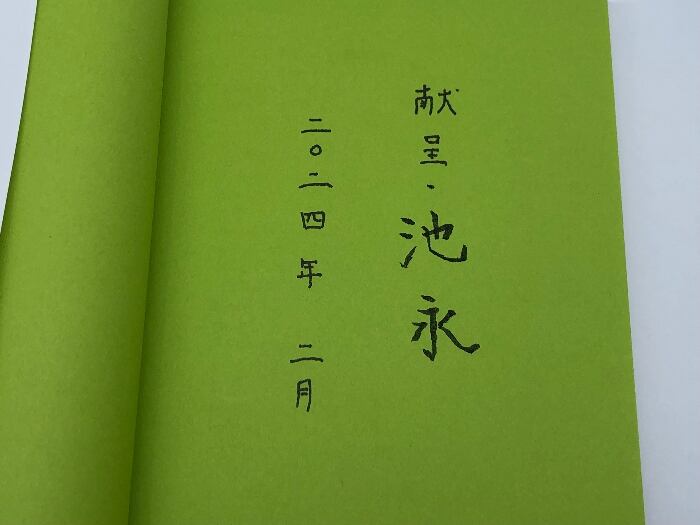 献呈・池永
二〇二四年 二月